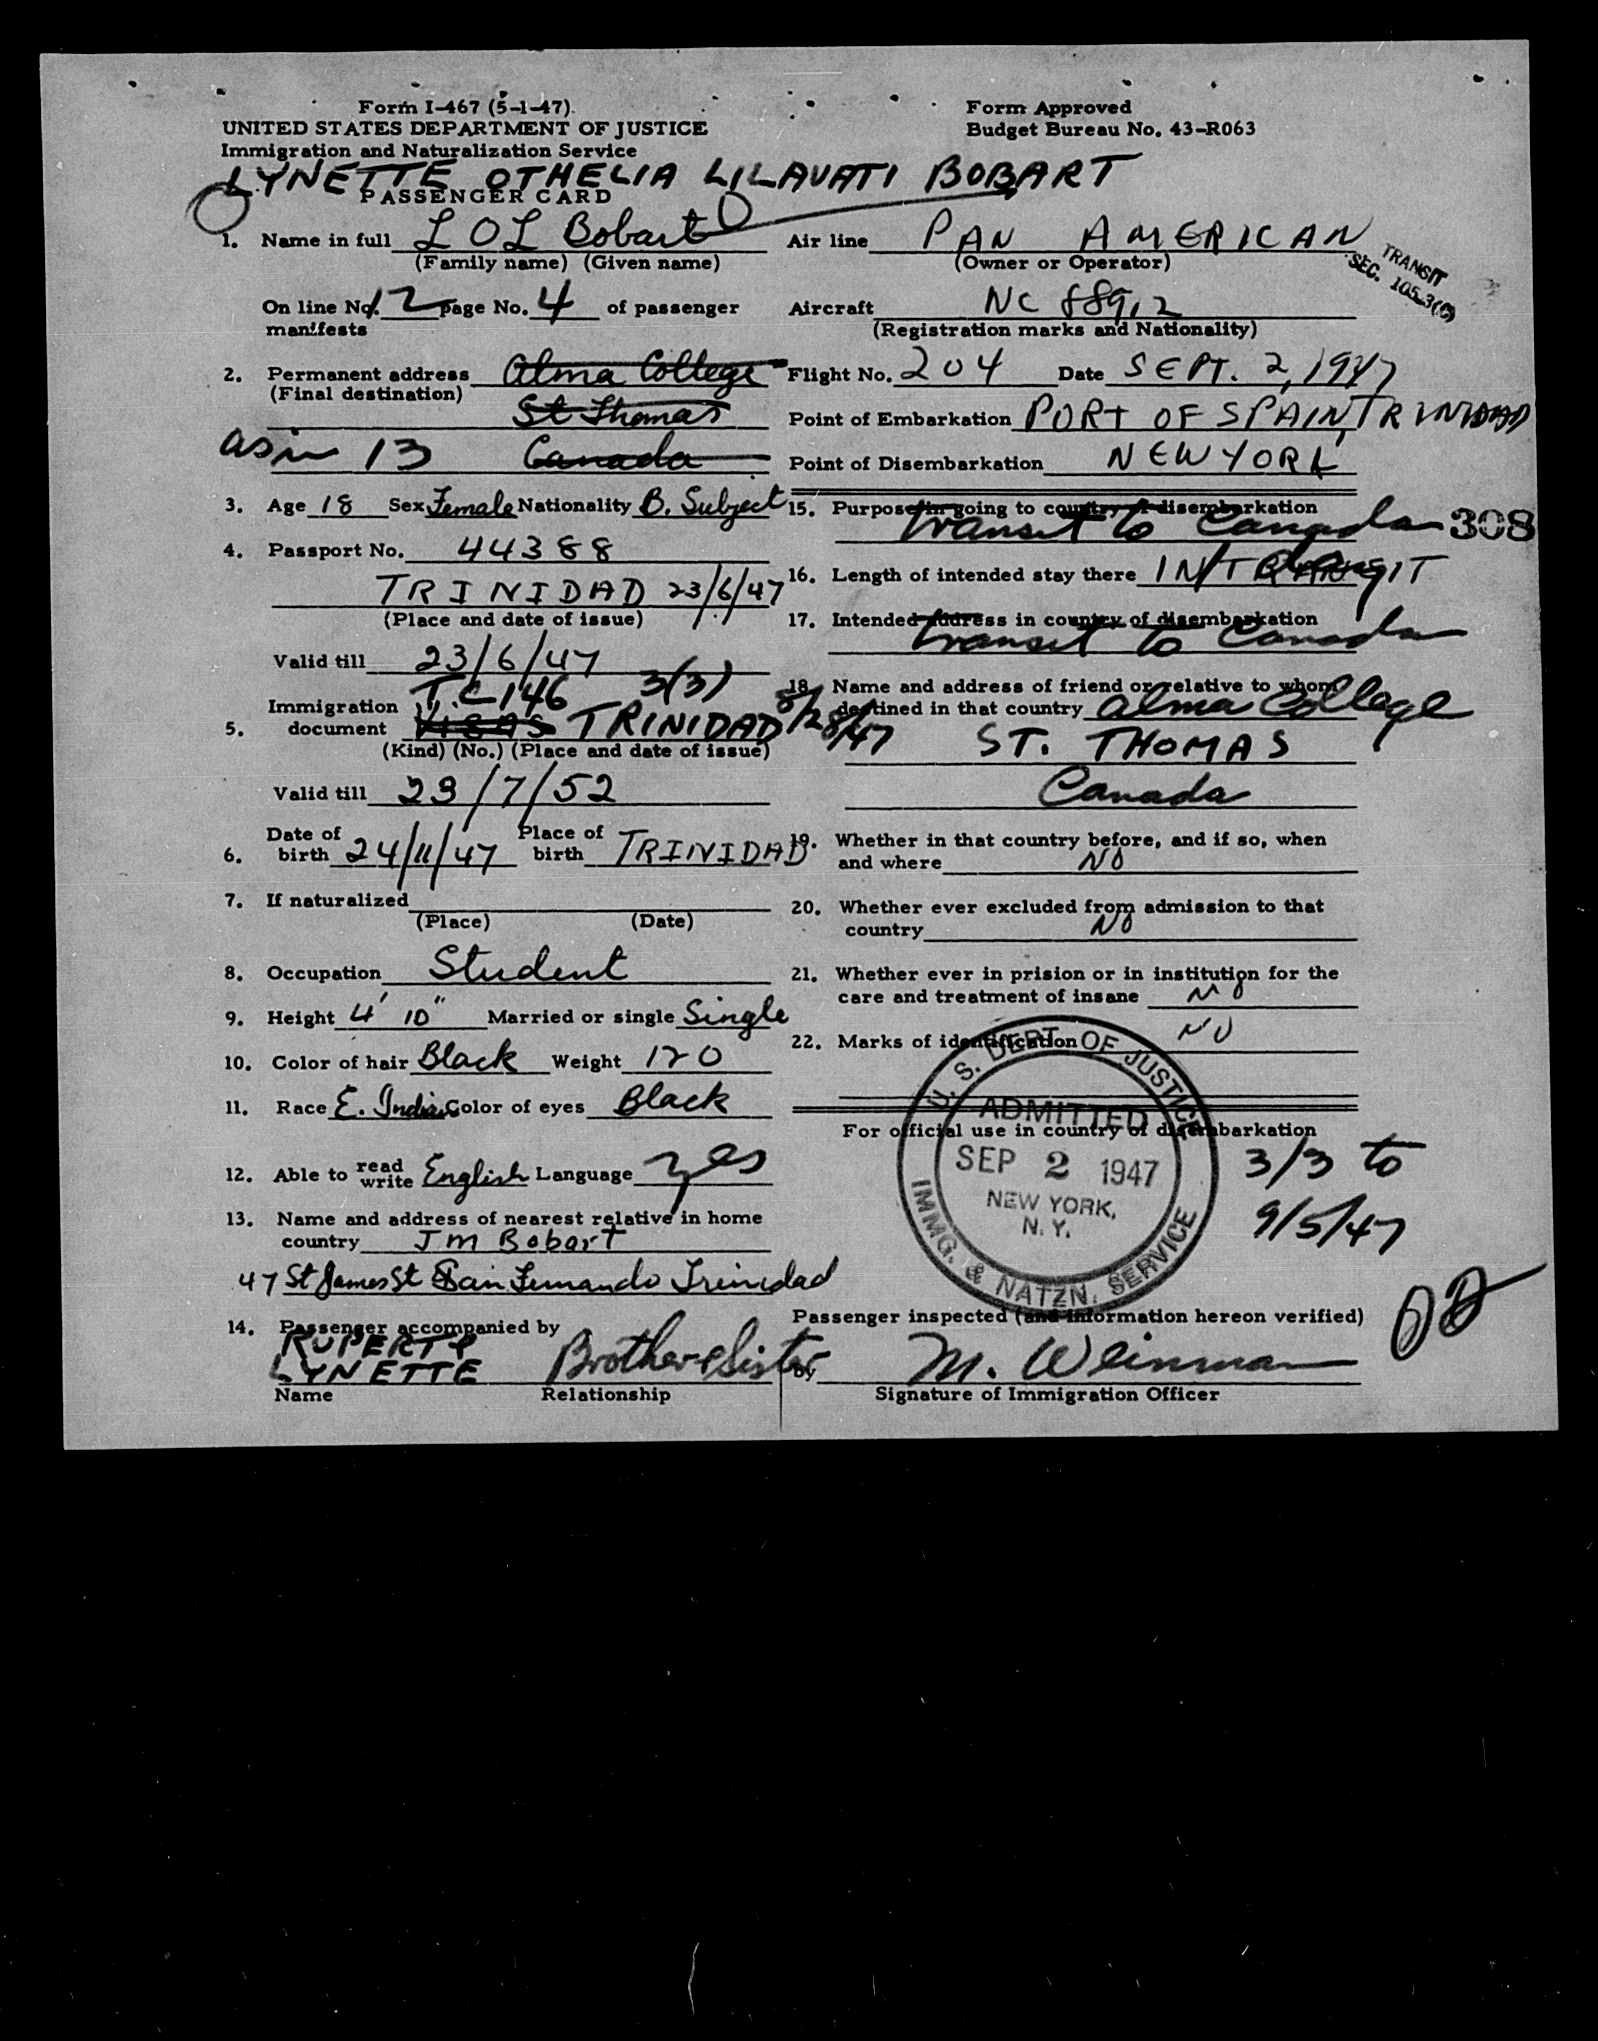 Form I-467 (5-1-47)
UNITED STATES DEPARTMENT OF JUSTICE
Immigration and Naturalization Service
Form Approved
Budget Bureau No. 43-R063
LYNETTE OTHELIA LILAVATI BOBART
PASSENGER CARD
1. Name in full L O L Bobart
(Family name) (Given name)
On line No. 12 page No. 4 of passenger
manifests
2. Permanent address Alma College
(Final destination)
St Thomas
as in 13 Canada
3. Age 18 Sex Female Nationality B. Subject
4. Passport No. 44388
TRINIDAD 23/6/47
(Place and date of issue)
Valid till 23/6/47
T.C 146 3(3)
Immigration
5. document VISAS TRINIDAD 8/28/47
(Kind) (No.) (Place and date of issue)
Valid till 23/7/52
6. Date of birth 24/11/47 Place of birth TRINIDAD
7. If naturalized
(Place) (Date)
8. Occupation Student
9. Height 4' 10" Married or single Single
10. Color of hair Black Weight 120
11. Race E. Indian Color of eyes Black
12. Able to read write English Language yes
13. Name and address of nearest relative in home
country J M Bobart
47 St James St San Fernando Trinidad
14. Passenger accompanied by
RUPERT &
LYNETTE Brother & Sister
Name Relationship
Air line PAN AMERICAN
(Owner or Operator)
TRANSIT
SEC. 105.3(C)
Aircraft NC 88912
(Registration marks and Nationality)
Flight No. 204 Date SEPT. 2, 1947
Point of Embarkation PORT OF SPAIN, TRINIDAD
Point of Disembarkation NEW YORK
15. Purpose in going to country of disembarkation
transit to Canada 308
16. Length of intended stay there IN TRANSIT
17. Intended address in country of disembarkation
transit to Canada
18. Name and address of friend or relative to whom
destined in that country Alma College
ST. THOMAS
Canada
19. Whether in that country before, and if so, when
and where NO
20. Whether ever excluded from admission to that
country NO
21. Whether ever in prision or in institution for the
care and treatment of insane NO
22. Marks of identification NO
For official use in country of disembarkation
U. S. DEPT. OF JUSTICE
ADMITTED
SEP 2 1947
NEW YORK,
N. Y.
IMMG. & NATZN. SERVICE
3/3 to
9/5/47
Passenger inspected (and information hereon verified)
by M. Weinman
Signature of Immigration Officer